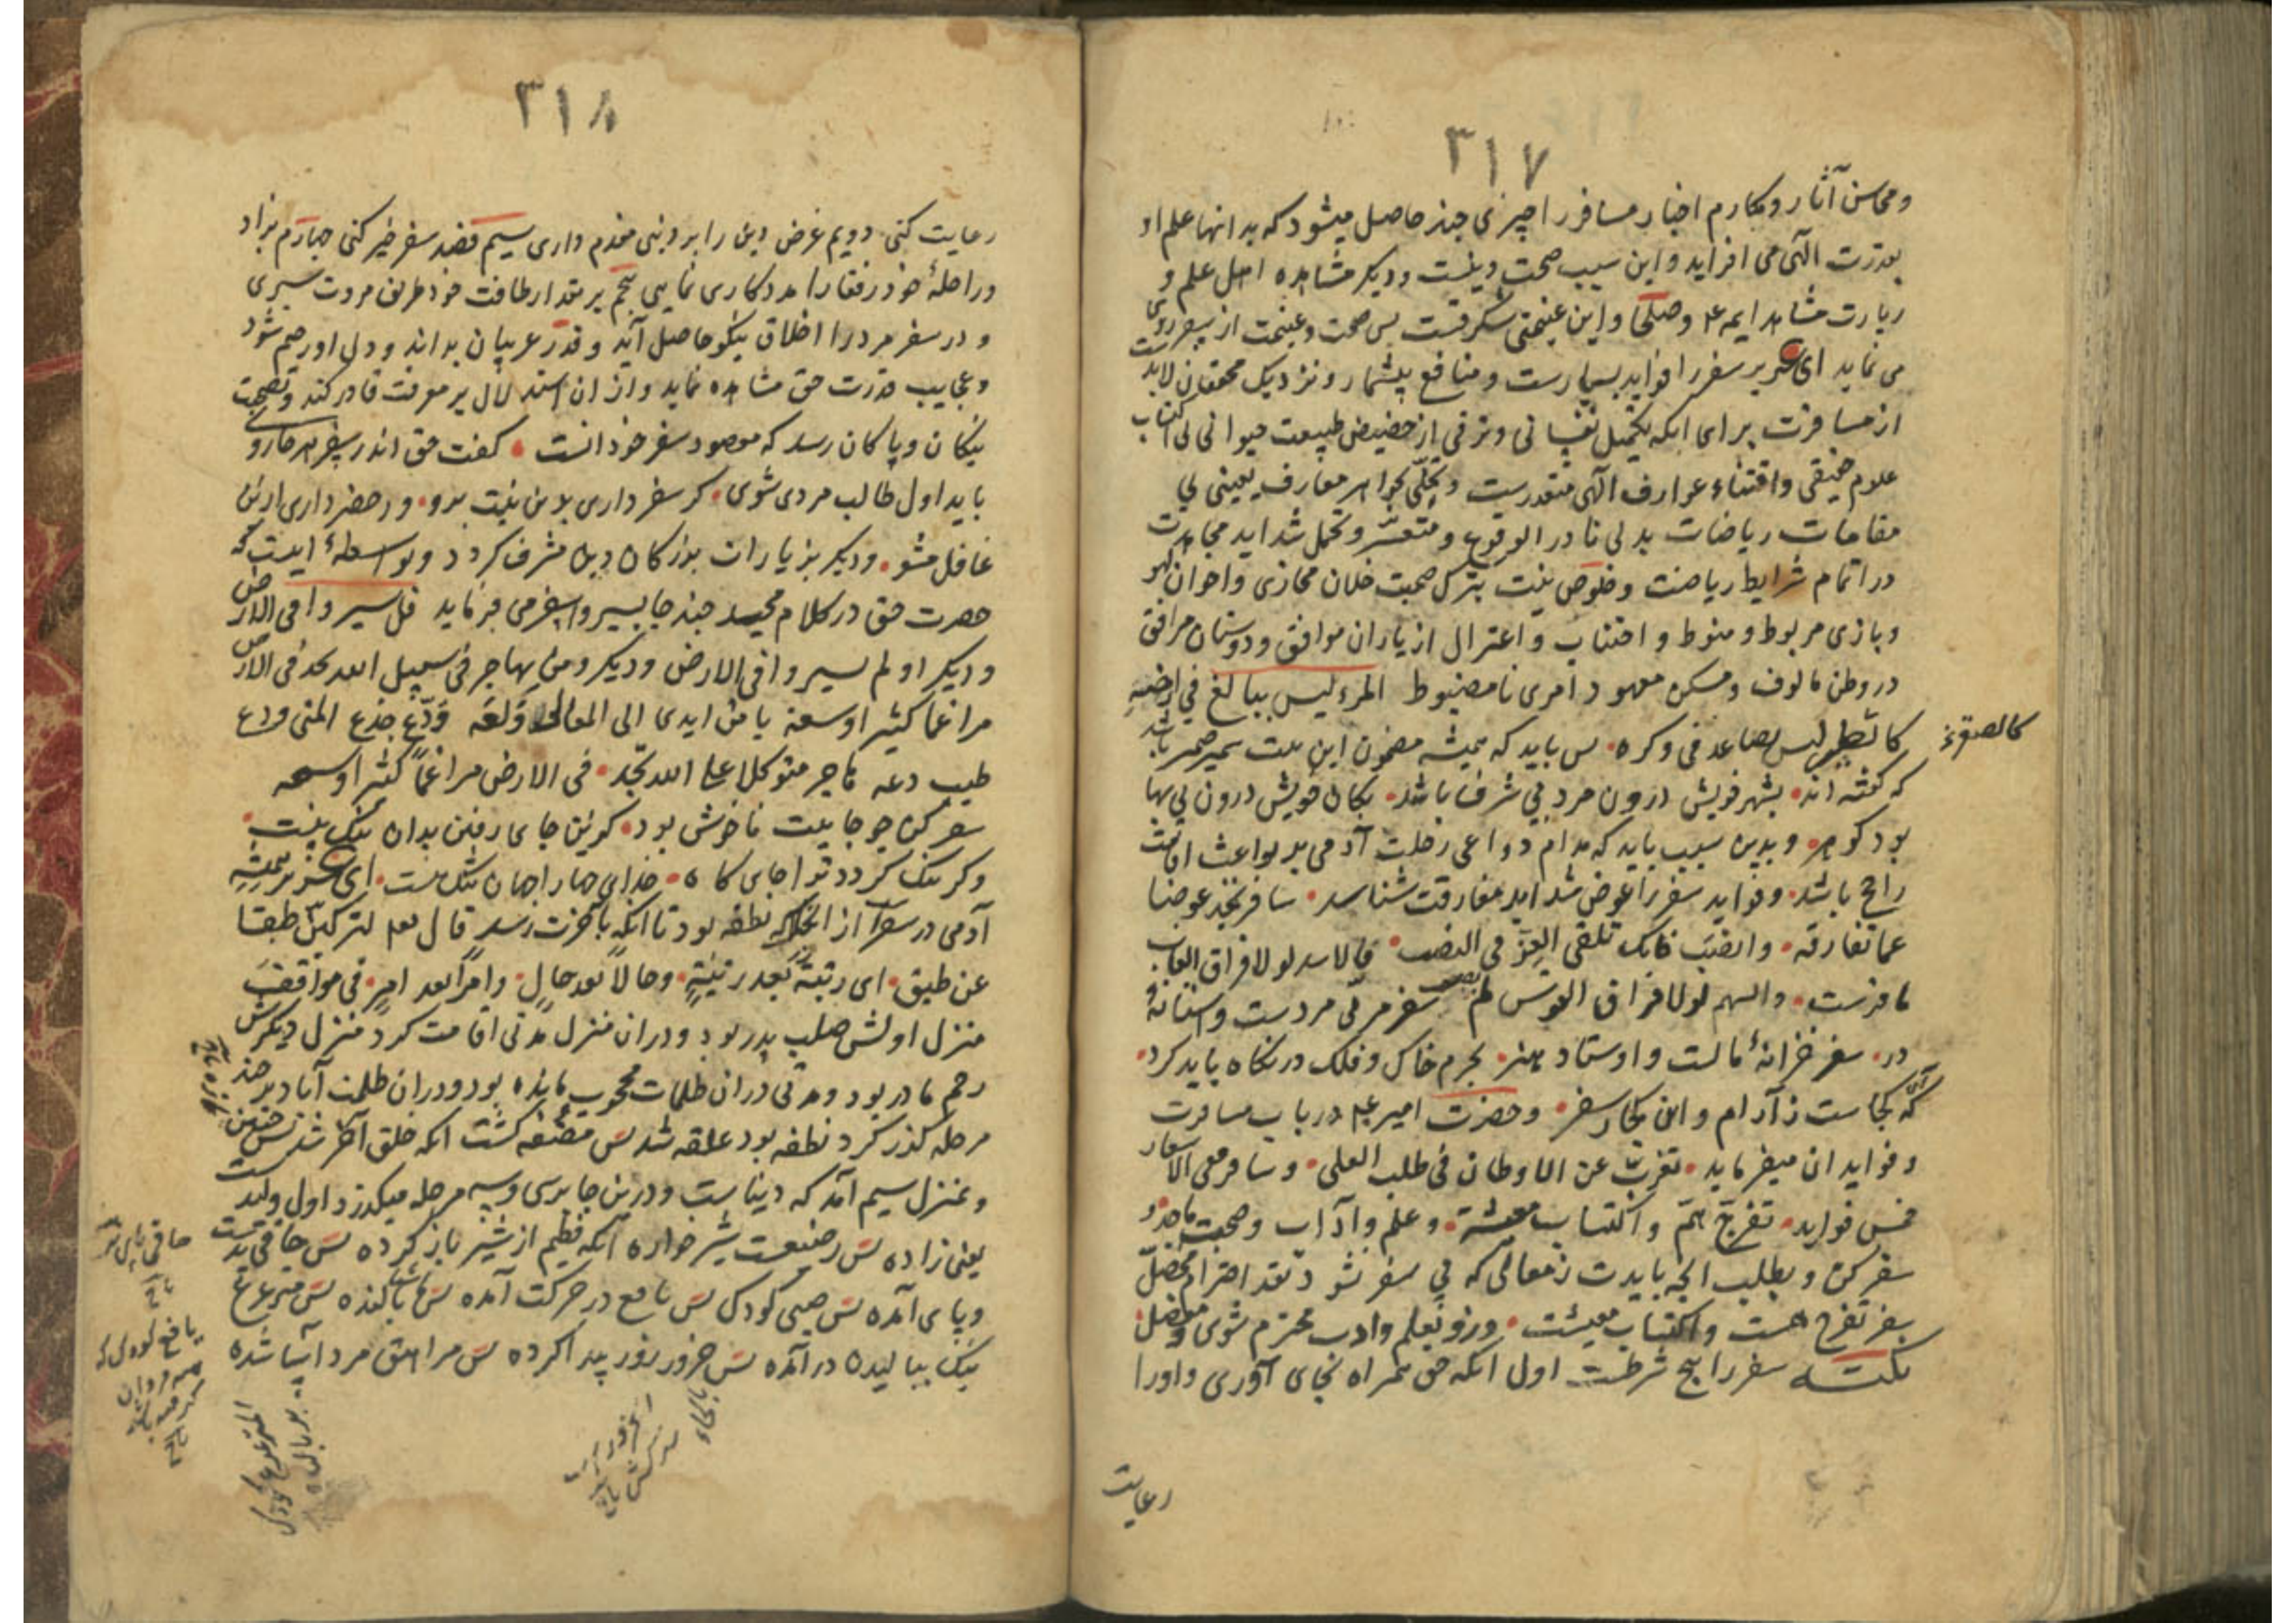 ۳۱۷
ومحاسن آثار ومکارم اخبار مسافر را چیزی چند حاصل میشود که بدانها علم او
بقدرت الهی می افزاید و این سبب صحت دینست و دیگر مشاهده اهل علم و
زیارت مشاهد ایمه ع وصلحا واین غنیمتی شکرفست پس صحت وغنیمت از سفر روی
می نماید ای عزیز سفر را فواید بسیارست و منافع بیشمار و نزدیک محققان لابدست
از مسافرت برای انکه تکمیل نفسانی وترقی از حضیض طبیعت حیوانی بی اکتساب
علوم حقیقی واقتناء عوارف الهی متعذرست وتحلّی بجواهر معارف یقینی بی
مقامات ریاضات بدنی نادر الوقوع ومتعسّر وتحمل شداید مجاهدت
در اتمام شرایط ریاضت وخلوص نیت بترک صحبت خلان مجازی واخوان لهو
وبازی مربوط ومنوط و اجتناب و اعتزال از یاران موافق ودوستان مرافق
در وطن مالوف ومسکن معهود امری نامضبوط المرء لیس ببالغ فی ارضه
کالصقر لیس بصاعد فی وکره • پس باید که همیشه مضمون این بیت سمیر ضمیر باشد
که گفته اند • بشهر خویش درون مرد بی شرف باشد • بکان خویش درون بی بها
بود گوهر • و بدین سبب باید که مدام دواعی رحلت آدمی بر بواعث اقامت
راجح باشد • وفواید سفر را عوض شداید مفارقت شناسد • سافر تجد عوضا
عما تفارقه • وانصب فانک تلقی العزّ فی النصب • فالاسد لولا فراق الغاب
مافرست • والسهم لولا فراق القوس لم یصب سفر مربّی مردست و آستانهٔ
در • سفر خزانهٔ مالست و اوستاد هنر • بجرم خاک وفلک در نگاه باید کرد •
که این کجاست ز آرام و ان کجا ز سفر • وحضرت امیر ع در باب مسافرت
وفواید ان میفرماید • تغرّب عن الاوطان فی طلب العلی • وسافر ففی الاسفار
خمس فواید • تفرّج همّ واکتساب معیشة • وعلم وآداب وصحبت ماجد •
سفر کن و بطلب انچه بایدت ز معالی که بی سفر نشود نقد احترام محصّل
بسفر تفرج همست واکتساب معیشت • وزو بعلم وادب محترم شوی ومفضل •
نکته سفر را پنج شرطست اول انکه حق همراه بجای آوری واورا
کالصقر
رعایت
۳۱۸
رعایت کنی • دویم غرض دین را بر دنیی مقدم داری سیم قصد سفر خیر کنی چهارم بزاد
وراحلهٔ خود رفقا را مددکاری نمایی پنجم بر مقدار طاقت خود طریق مروت سپری
و در سفر مرد را اخلاق نیکو حاصل آید و قدر غریبان بداند و دل او رحیم شود
وعجایب قدرت حق مشاهده نماید و از ان استدلال بر معرفت قادر کند وبصحبت
نیکان و پاکان رسد که مقصود سفر خود انست • گفت حق اندر سفر هر جا روی
باید اول طالب مردی شوی • گر سفر داری بدین نیت برو • ور حضر داری ازین
غافل مشو • ودیگر بزیارات بزرگان دین مشرف گردد وبواسطهٔ اینست که
حضرت حق در کلام مجید چند جا بسیر وسفر می فرماید قل سیروا فی الارض
ودیگر اولم یسیروا فی الارض ودیگر ومن یهاجر فی سبیل الله یجد فی الارض
مراغما کثیرا وسعة یا من ایدی الی المعالی وَلَعَه ودّع جذع المنی ودع
طیب دعه هاجر متوکلا علی الله تجد • فی الارض مراغماً کثیرا وسعه
سفر کن چو جایت ناخوش بود • کزین جای رفتن بدان ننگ نیست •
وگر تنگ گردد ترا جایگاه • خدای جهان را جهان تنگ نیست • ای عزیز همیشه
آدمی در سفر است از انگه که نطفه بود تا انکه بآخرت رسد قال تعم لترکبنّ طبقا
عن طبق • ای رتبةً بعد رتبةٍ • وحالاً بعد حالٍ • وامراً بعد امرٍ • فی مواقف
منزل اولش صلب پدر بود ودران منزل مدتی اقامت کرد منزل دیگرش
رحم مادر بود و مدتی دران ظلمات محجوب مانده بود ودران ظلمت آباد بر چند
مرحله گذر کرد نطفه بود علقه شد پس مضغه گشت انکه خلق آخر شد پس جنین
وبمنزل سیم آمد که دنیاست ودرین جا بر سی وسه مرحله میگذرد اول ولید
یعنی زاده پس رضیعت شیر خواره آنکه فطیم از شیر باز کرده پس
وپای آمده پس صبی کودک پس یافع در حرکت آمده پس
نیک ببالیدن در آمده پس حزور زور پیدا کرده پس مراهق مرد آسا شده
یافع کودک که
الحزور